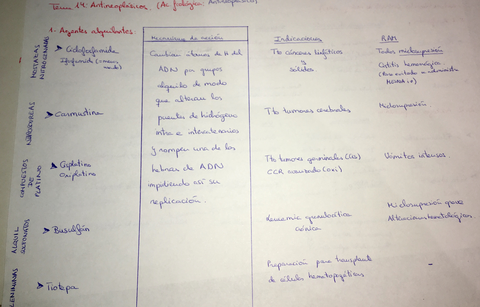 Tema 14: Antineoplásicos (Ac.
1. Agentes alquilantes:
Mecanismo de acción
Indicaciones
RAM
MOSTAZAS NITROGENADAS
Ciclofosfamida
Ifosfamida
Cambian átomos de H del
ADN por grupos
alquilo de modo
que alteran los
puentes de hidrógeno
intra e intercatenarios
y rompen una de las
hebras de ADN
impidiendo así su
replicación.
Tto cánceres linfáticos
sólidos
Todos mielosupresión
Cistitis hemorrágica
(Para evitarlo se administra
MESNA)
NITROSOUREAS
Carmustina
Tto tumores cerebrales
Mielosupresión
COMPUESTOS DE PLATINO
Cisplatino
Oxiplatino
Tto tumores germinales (cis)
CCR avanzado (oxi)
Vómitos intensos
ALQUIL SULFONATOS
Busulfán
Leucemia granulocítica
crónica
Mielosupresión grave
Alteraciones hematológicas
Tiotepa
Preparación para transplante
de células hematopoyéticas
-